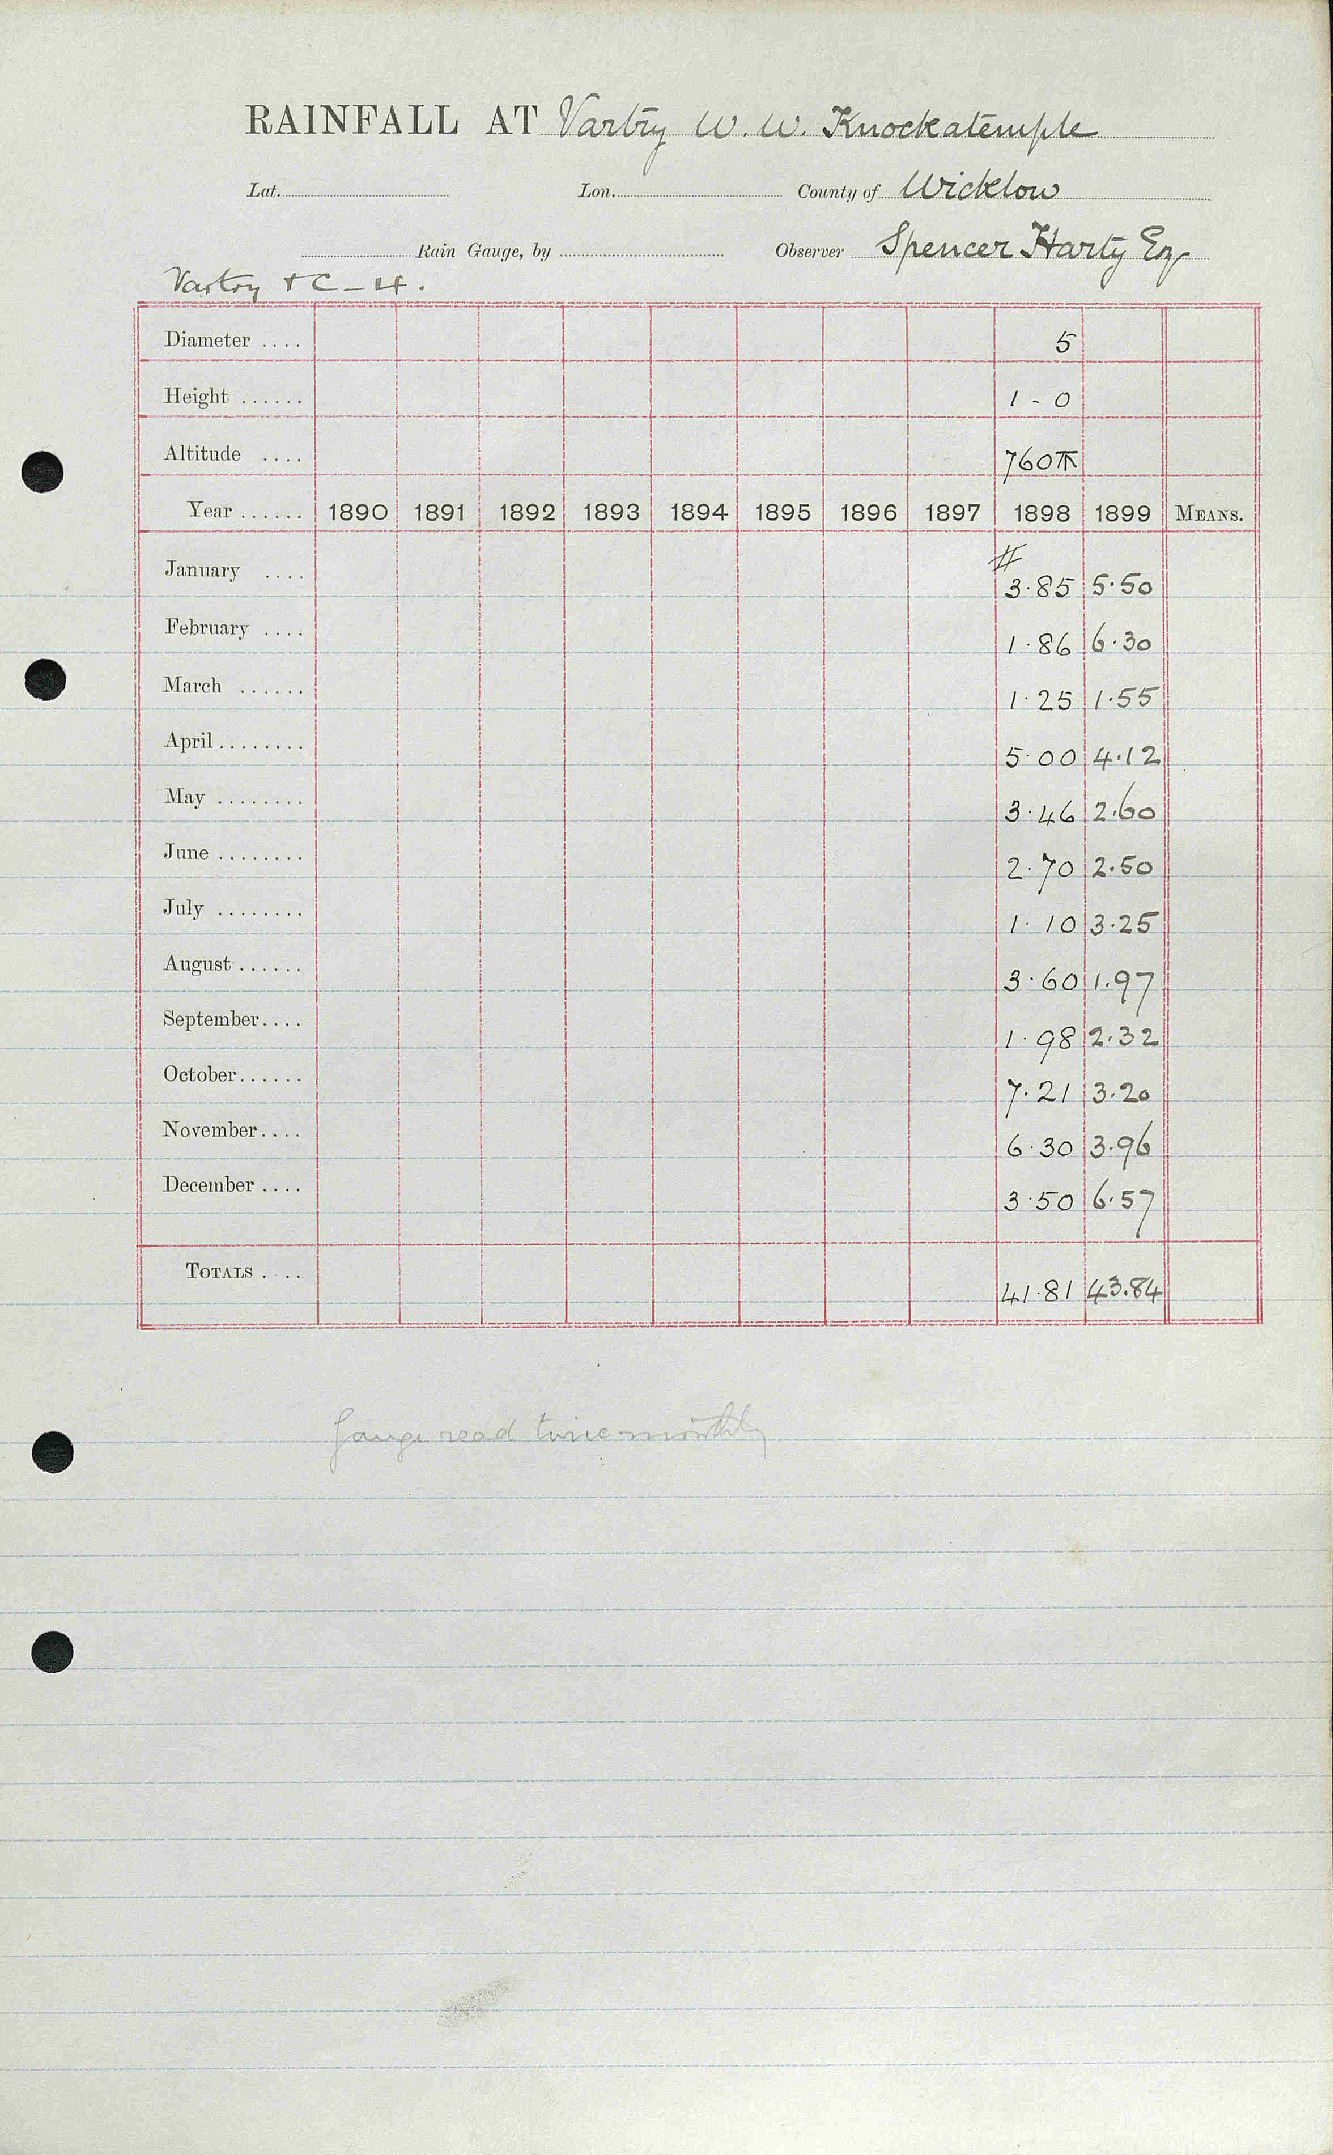 RAINFALL AT Vartry W. W. Knockatemple
Lat. Lon. County of Wicklow
Rain Gauge, by Observer Spencer Harty Esq
Vartry + C - 4.
Diameter .... 5
Height ...... 1 - 0
Altitude .... 760 ft
Year ...... 1890 1891 1892 1893 1894 1895 1896 1897 1898 1899 MEANS.
#
January .... 3.85 5.50
February .... 1.86 6.30
March ...... 1.25 1.55
April ........ 5.00 4.12
May ........ 3.46 2.60
June ........ 2.70 2.50
July ........ 1.10 3.25
August ...... 3.60 1.97
September.... 1.98 2.32
October...... 7.21 3.20
November.... 6.30 3.96
December .... 3.50 6.57
TOTALS .... 41.81 43.84
Gauge read twice monthly